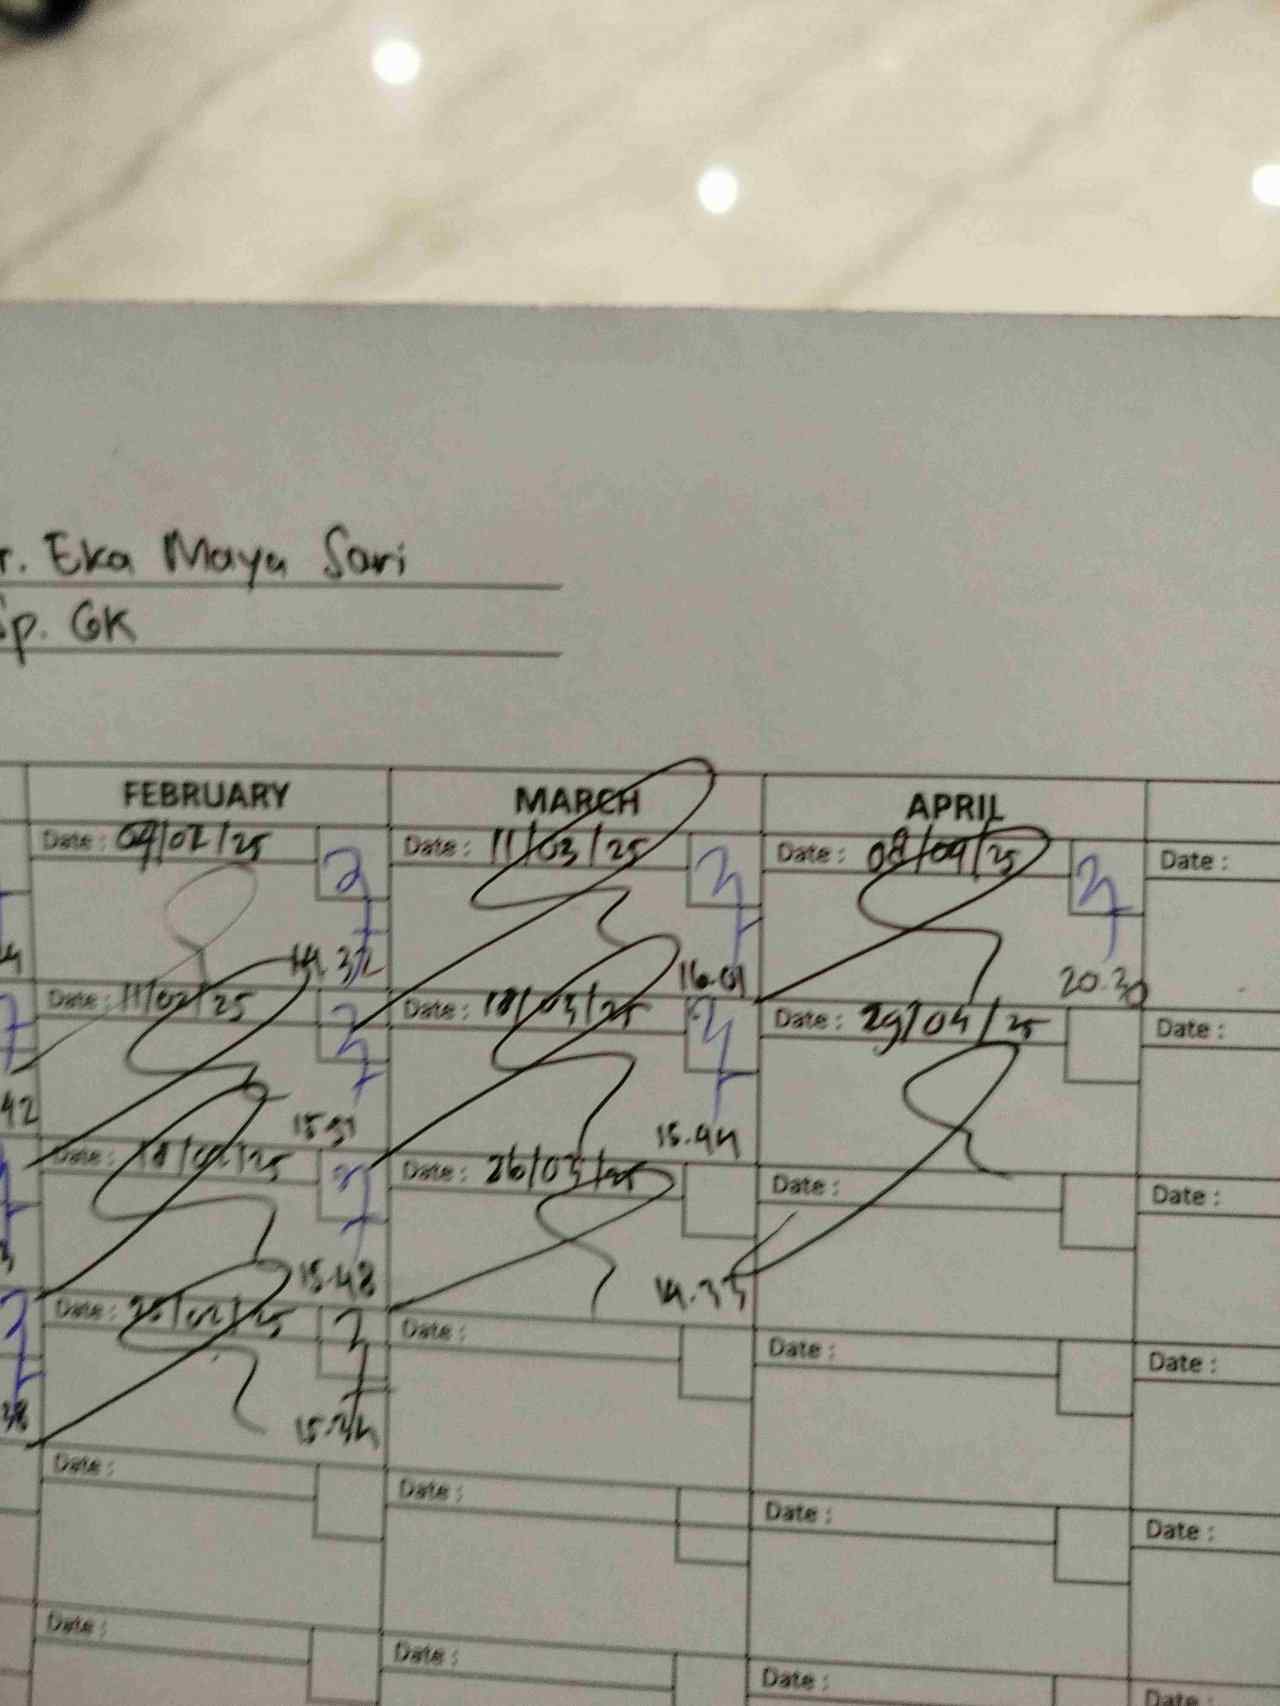 r. Eka Maya Sari
Sp. GK
FEBRUARY MARCH APRIL
Date : 04/02/25 Date : 11/03/25 Date : 08/04/25 Date :
14.32 16.01 20.30
Date : 11/02/25 Date : 18/03/25 Date : 29/04/25 Date :
42 15.51 15.44
Date : 18/02/25 Date : 26/03/25 Date : Date :
15.48 14.33
Date : 25/02/25 Date : Date : Date :
38 15.34
Date : Date : Date : Date :
Date : Date : Date : Date :